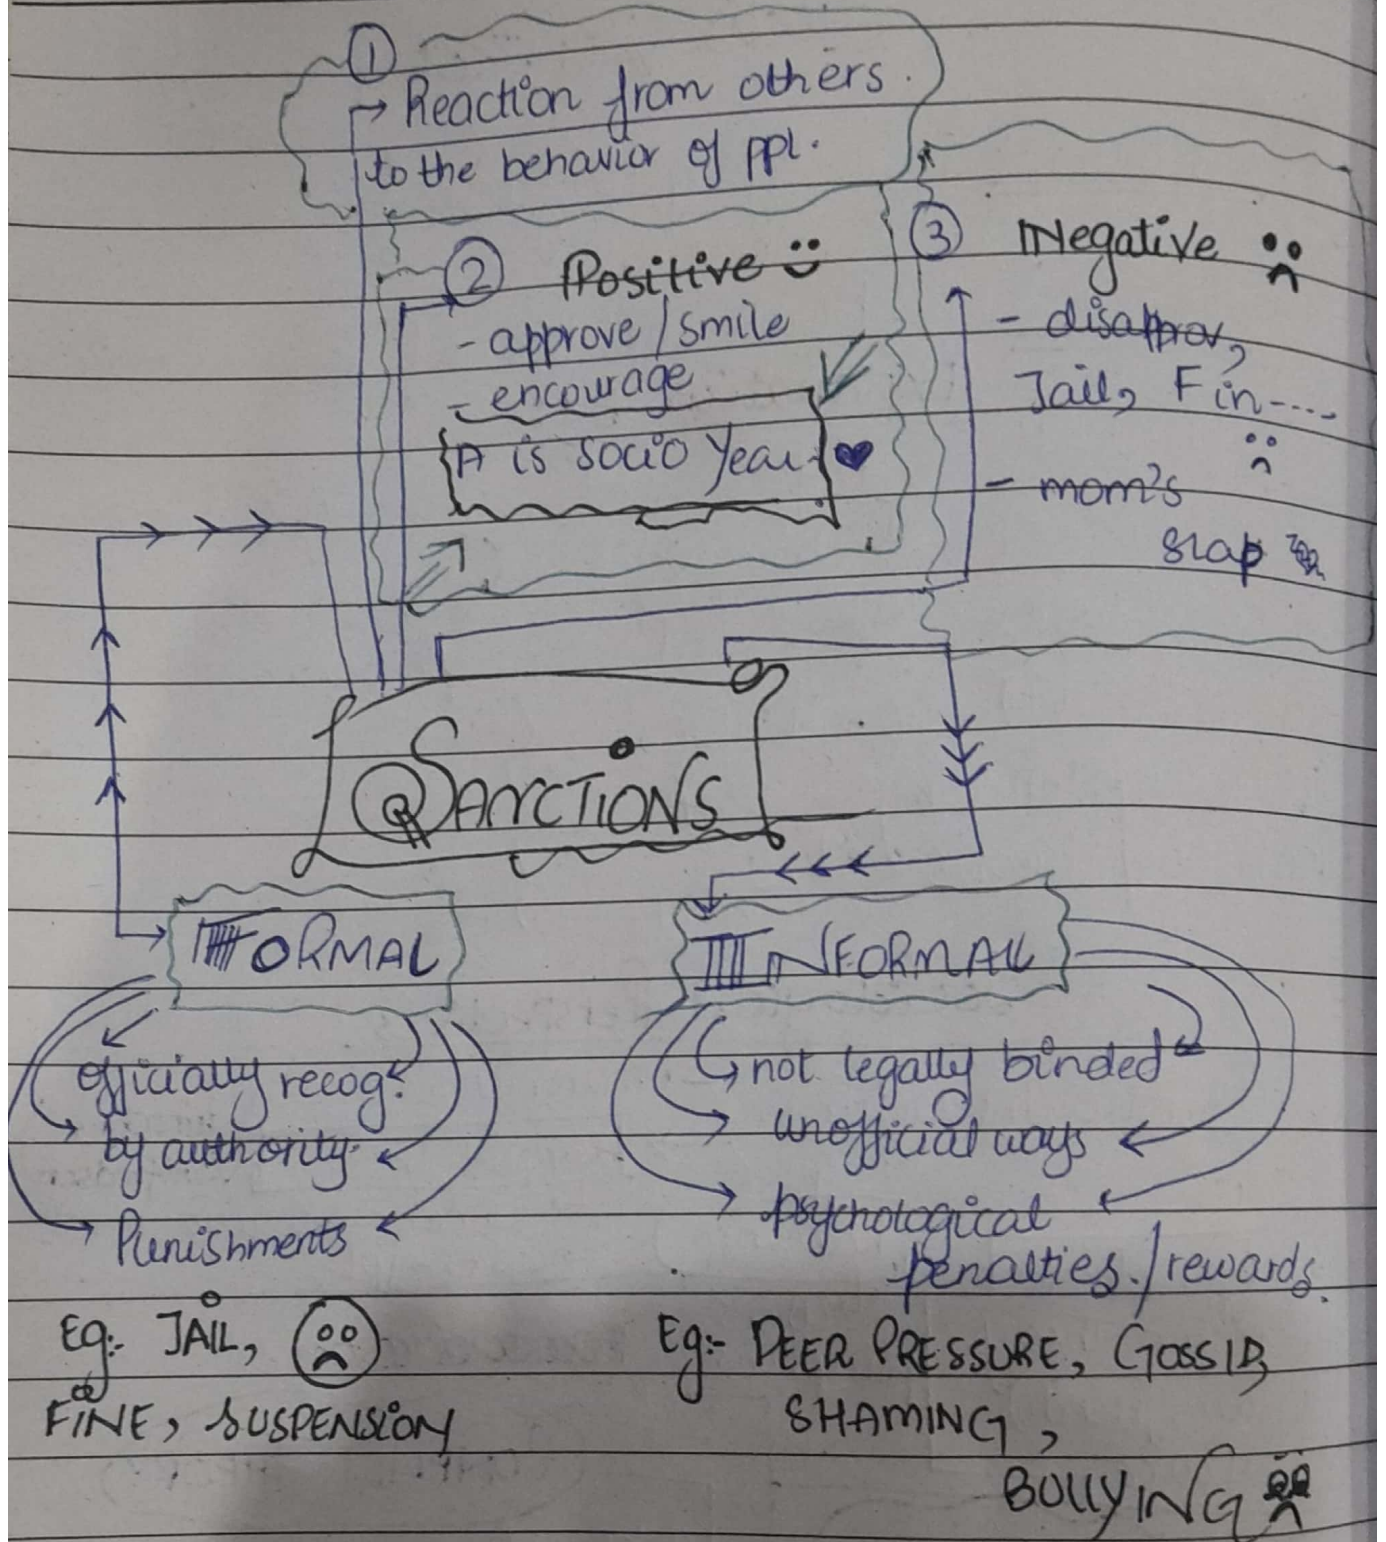 ①
→ Reaction from others.
to the behavior of ppl.
② Positive
- approve / smile
- encourage
A is socio Year
③ Negative
- disapprov,
Jail, Fin----
- mom's
slap
SANCTIONS
FORMAL
officially recog.
by authority.
Punishments
Eg:- JAIL,
FINE, SUSPENSION
INFORMAL
not legally binded
unofficial ways
psychological
penalties. / rewards.
Eg:- PEER PRESSURE, GOSSIP,
SHAMING,
BULLYING